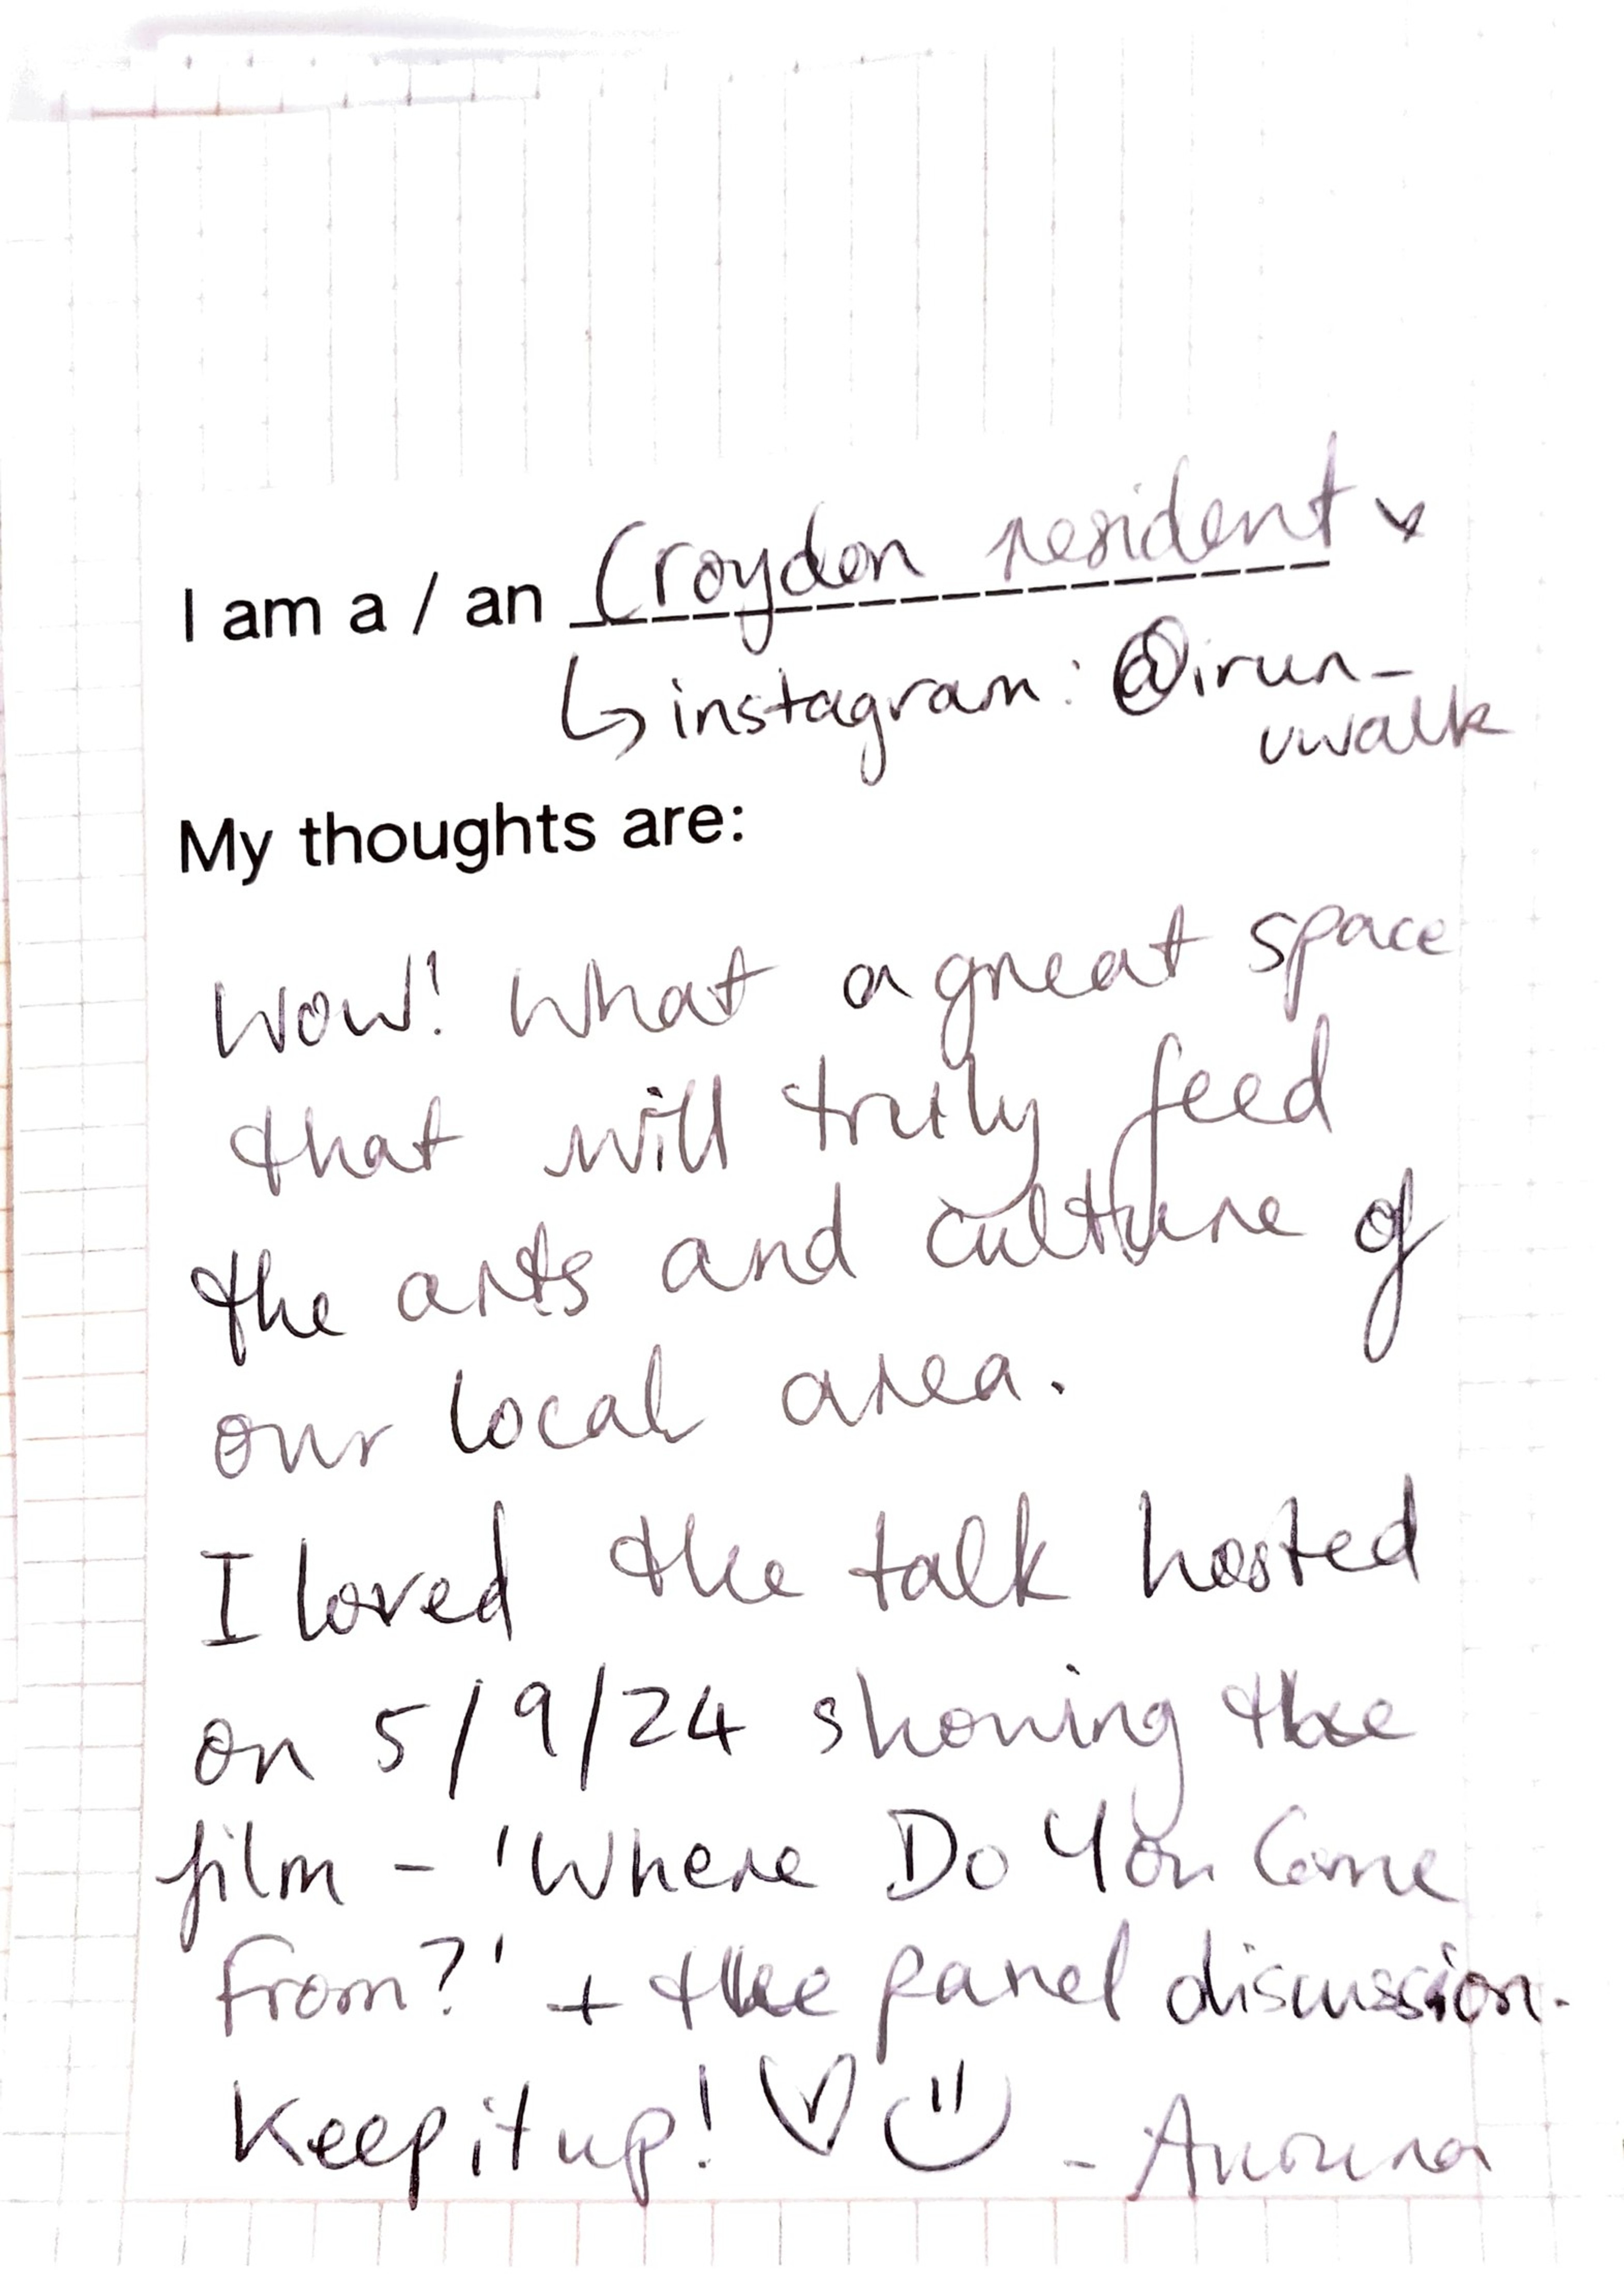 I am a / an Croydon resident x
↳ instagram: @irun_
uwalk
My thoughts are:
Wow! What a great space
that will truly feed
the arts and culture of
our local area.
I loved the talk hosted
on 5/9/24 showing the
film - 'Where Do You Come
From?' + the panel discussion.
Keep it up! ♡ -